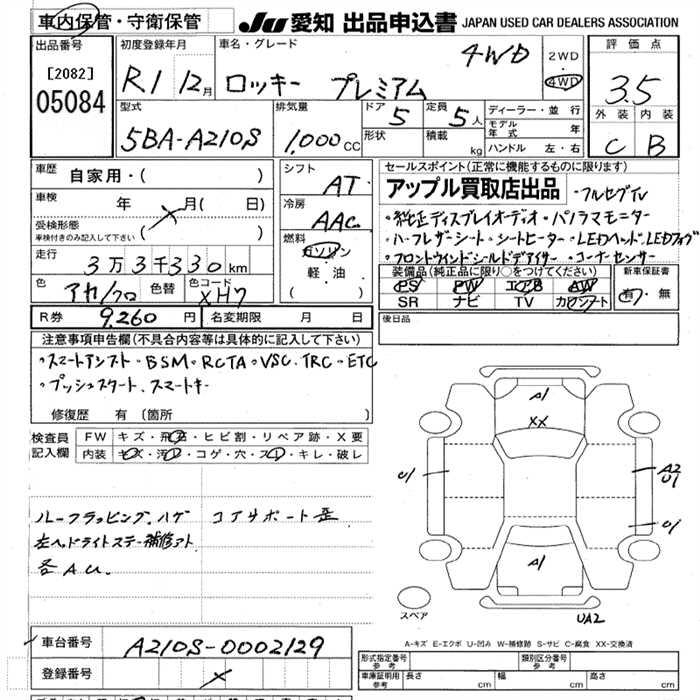 車内保管・守衛保管 JU 愛知 出品申込書 JAPAN USED CAR DEALERS ASSOCIATION
出品番号 初度登録年月 車名・グレード 4WD 2WD 評価点
[2082]
05084 R1 12月 ロッキー プレミアム ・ 4WD 3.5
型式 排気量 ドア 5 定員 5人 ディーラー・並行 外装 内装
5BA-A210S 1,000cc 形状 積載 kg モデル年式 年 C B
ハンドル 左・右
車歴 自家用・( ) シフト AT セールスポイント(正常に機能するものに限ります)
アップル買取店出品 ・フルセグTV
車検 年 月( 日) 冷房 AAC ・純正ディスプレイオーディオ・パノラマモニター
受検形態
車検付きのみ記入して下さい ( ) 燃料 ・ハーフレザーシート・シートヒーター・LEDヘッド、LEDフォグ
走行 3万3千330km ガソリン ・フロントウィンドシールドデアイサー・コーナーセンサー
軽・油 装備品(純正品に限り○をつけてください) 新車保証書
色 アカ/クロ 色替 色コード XH7 ( ) PS PW エアB AW 有・無
SR ナビ TV カワシート
R券 9,260円 名変期限 月 日 後日品
注意事項申告欄(不具合内容等は具体的に記入して下さい)
・スマートアシスト・BSM・RCTA・VSC、TRC・ETC
・プッシュスタート、スマートキー
修復歴 有 (箇所 )
検査員 FW キズ・飛石・ヒビ割・リペア跡・X要
記入欄 内装 キズ・汚れ・コゲ・穴・スレ・キレ・破レ
ルーフラッピング、ハゲ コアサポート歪
左ヘッドライトステー補修アト
各AU.
A1
XX
U1
A2
U1
U1
A1
スペア
UA2
A-キズ E-エクボ U-凹み W-補修跡 S-サビ C-腐食 XX-交換済
車台番号 A210S-0002129
形式指定番号 参考 類別区分番号 参考
登録番号 車庫証明用 参考 長さ cm 幅 cm 高さ cm